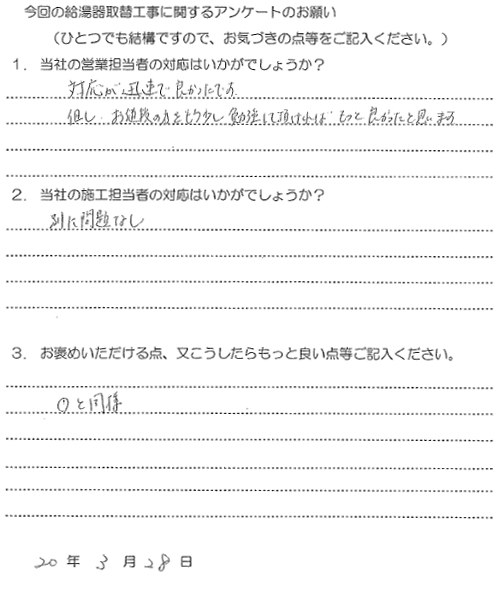 今回の給湯器取替工事に関するアンケートのお願い
（ひとつでも結構ですので、お気づきの点等をご記入ください。）
１．当社の営業担当者の対応はいかがでしょうか？
対応が迅速で良かったです
但し、お値段の方をもう少し勉強して頂ければもっと良かったと思います
２．当社の施工担当者の対応はいかがでしょうか？
別に問題なし
３．お褒めいただける点、又こうしたらもっと良い点等ご記入ください。
①と同様
20年3月28日